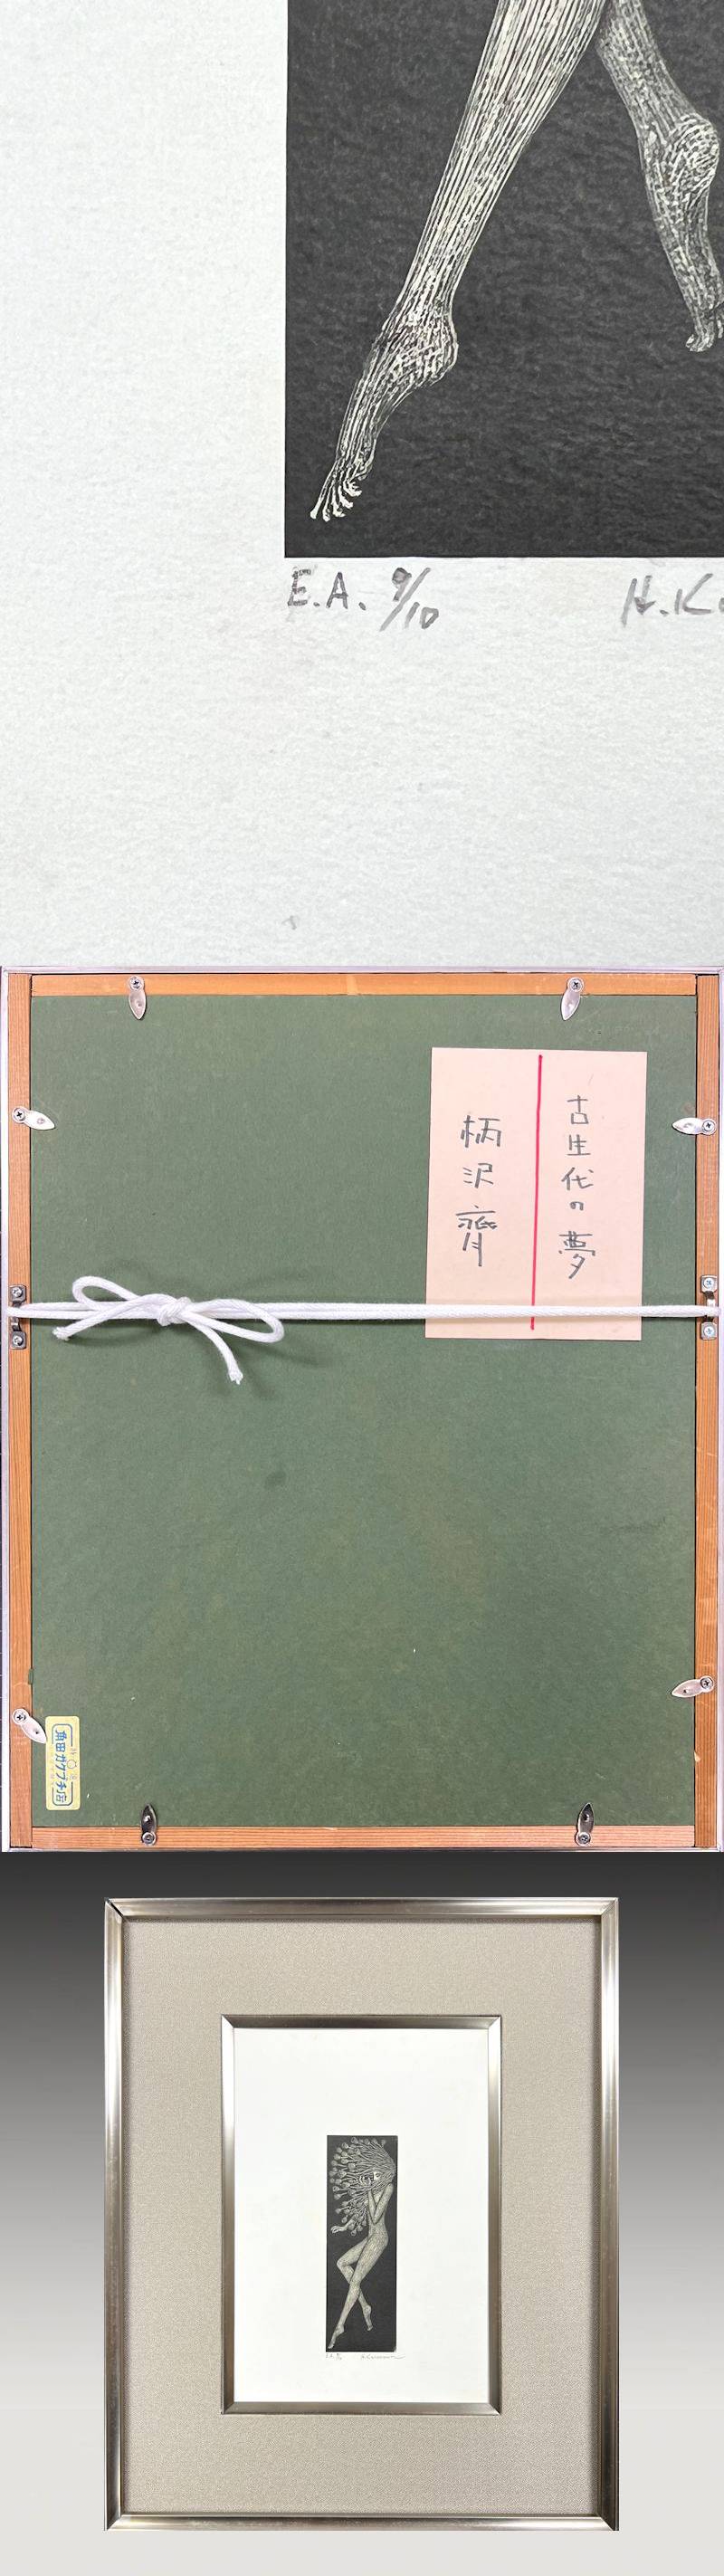 E.A. 9/10
H.K
古生代の夢
柄沢齊
角田ガクブチ店